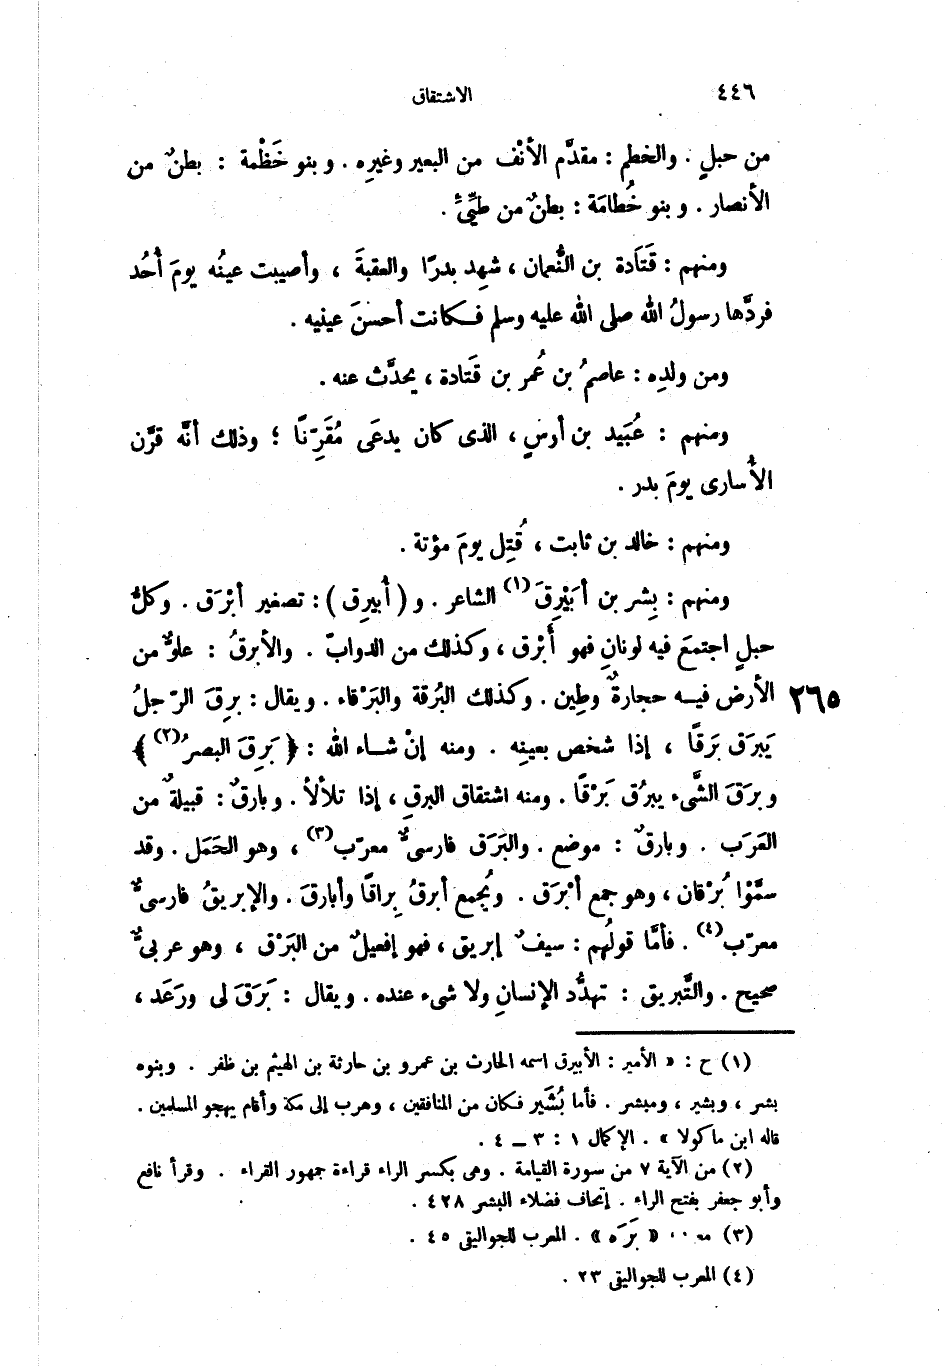 ٤٤٦
الاشتقاق
من حبلٍ . والخطم : مقدَّم الأنْف من البعير وغيرِه . وبنو خَظْمة : بطنٌ من
الأنصار . وبنو خُطامَة : بطنٌ من طيِّئ .
ومنهم : قَتَادة بن النُّعمان ، شهِد بدرًا والعقبةَ ، وأصيبت عينُه يومَ أُحُد
فردَّها رسولُ الله صلى الله عليه وسلم فكانت أحسنَ عينيه .
ومن ولدِه : عاصمُ بن عُمر بن قَتادة ، يحدَّث عنه .
ومنهم : عُبَيد بن أوسٍ ، الذى كان يدعَى مُقَرِّنًا ؛ وذلك أنَّه قرَّن
الأُسارى يومَ بدر .
ومنهم : خالد بن ثابت ، قُتِل يومَ مؤتة .
ومنهم : بِشر بن أبَيْرِقَ (١) الشاعر . و ( أُبيرِق ) : تصغير أبْرَق . وكلُّ
حبلٍ اجتمعَ فيه لونانِ فهو أَبْرق ، وكذلك من الدوابّ . والأبرقُ : علوٌّ من
الأرض فيه حجارةٌ وطِين . وكذلك البُرقة والبَرْقاء . ويقال : برِقَ الرّجلُ
٢٦٥
يَبرَق بَرَقًا ، إذا شخص بعينِه . ومنه إنْ شاء الله : ﴿ بَرِقَ البصرُ (٢) ﴾
وبرَقَ الشَّىء يبرُق بَرْقًا . ومنه اشتقاق البرقِ ، إذا تلألأ . وبارقٌ : قبيلةٌ من
العَرَب . وبارقٌ : موضع . والبَرَق فارسىٌّ معرّب (٣) ، وهو الحَمَل . وقد
سمَّوْا بُرْقان ، وهو جمع أبْرَق . ويُجمع أبرقُ بِراقًا وأبارقَ . والإبريقُ فارسىٌّ
معرّب (٤) . فأمَّا قولُهم : سيفٌ إبريق ، فهو إفعيلٌ من البَرْق ، وهو عربىٌّ
صحيح . والتَّبريق : تهدُّد الإنسانِ ولا شىء عنده . ويقال : بَرَقَ لى ورَعَد ،
(١) ح : « الأمير : الأبيرق اسمه الحارث بن عمرو بن حارثة بن الهيثم بن ظفر . وبنوه
بشر ، وبشير ، ومبشر . فأما بُشَير فكان من المنافقين ، وهرب إلى مكة وأقام يهجو المسلمين .
قاله ابن ماكولا » . الإكمال ١ : ٣ – ٤ .
(٢) من الآية ٧ من سورة القيامة . وهى بكسر الراء قراءة جمهور القراء . وقرأ نافع
وأبو جعفر بفتح الراء . إتحاف فضلاء البشر ٤٢٨ .
(٣) « بَرَه » . المعرب للجواليقى ٤٥ .
(٤) المعرب للجواليقى ٢٣ .